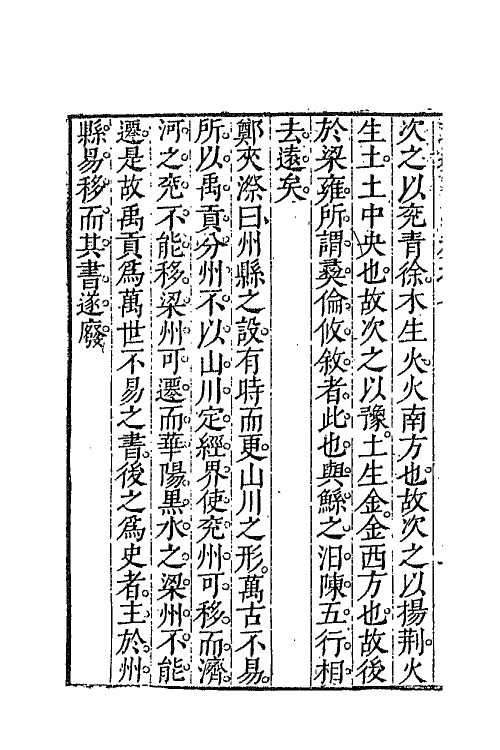 次之以兖青徐。木生火。火南方也。故次之以揚荆。火
生土。土中央也。故次之以豫。土生金。金西方也。故後
於梁雍。所謂彛倫攸敘者。此也。與鯀之汨陳五行。相
去遠矣。
鄭夾漈曰。州縣之設。有時而更。山川之形。萬古不易。
所以禹貢分州。不以山川定經界。使兖州可移。而濟
河之兖不能移。梁州可遷。而華陽黑水之梁州不能
遷。是故禹貢爲萬世不易之書。後之爲史者。主於州
縣。易移而其書遂廢。